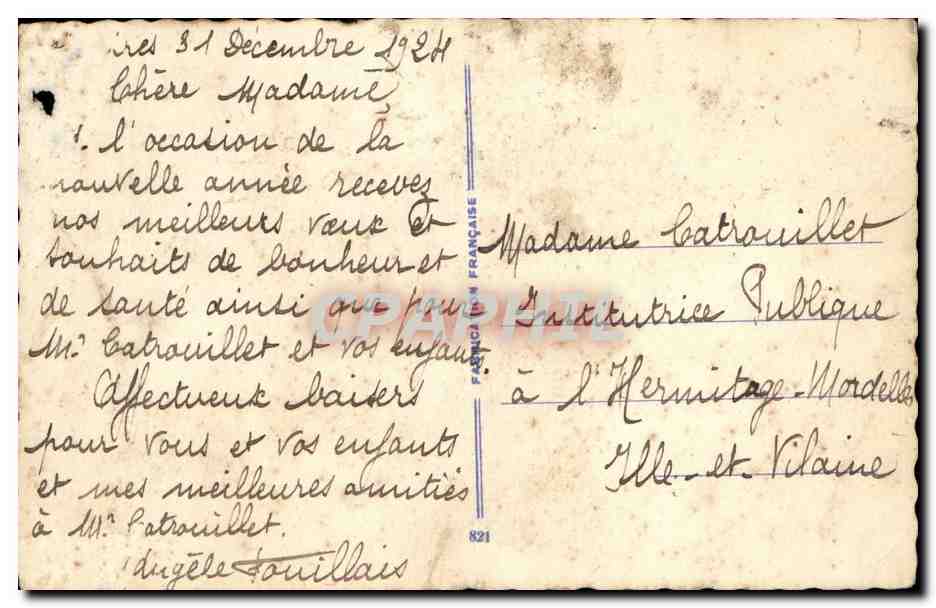 ires 31 Décembre 1924
Chère Madame,
l'occasion de la
nouvelle année recevez
nos meilleurs vœux et
souhaits de bonheur et
de santé ainsi que pour
Mr Catrouillet et vos enfants.
Affectueux baisers
pour vous et vos enfants
et mes meilleures amitiés
à Mr Catrouillet.
Angèle Touillais
FABRICATION FRANÇAISE
821
Madame Catrouillet
Institutrice Publique
à l'Hermitage-Mordelles
Ille-et-Vilaine
CPAPHIL